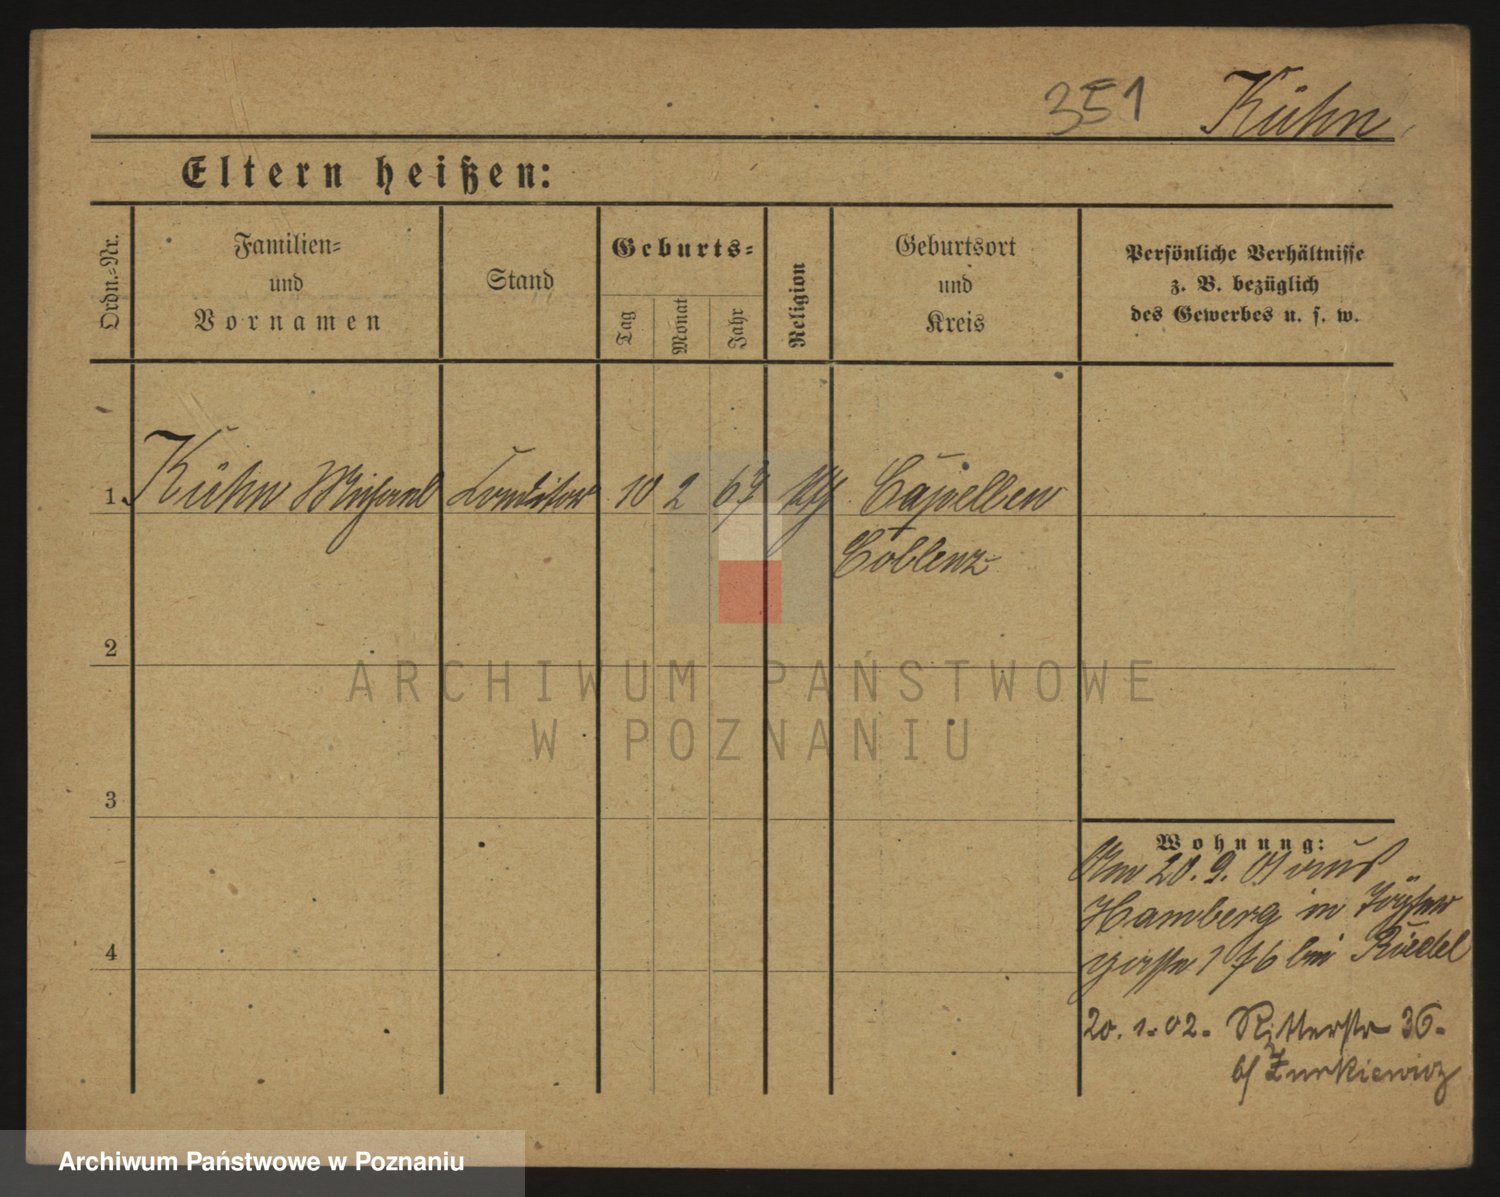 351 Kühn
Eltern heißen:
Ordn.-Nr.
Familien-
und
Vornamen
Stand
Geburts-
Tag
Monat
Jahr
Religion
Geburtsort
und
Kreis
Persönliche Verhältnisse
z. B. bezüglich
des Gewerbes u. s. w.
1 Kühn Michael Conditor 10 2 67 Capellen
Coblenz
2
3
4
ARCHIWUM PAŃSTWOWE
W POZNANIU
Wohnung:
Am 20. 9. 01 aus
Hamberg in
gasse bei Riedel
20. 1. 02. Ritterstr 36.
b/ Zurkiewicz
Archiwum Państwowe w Poznaniu